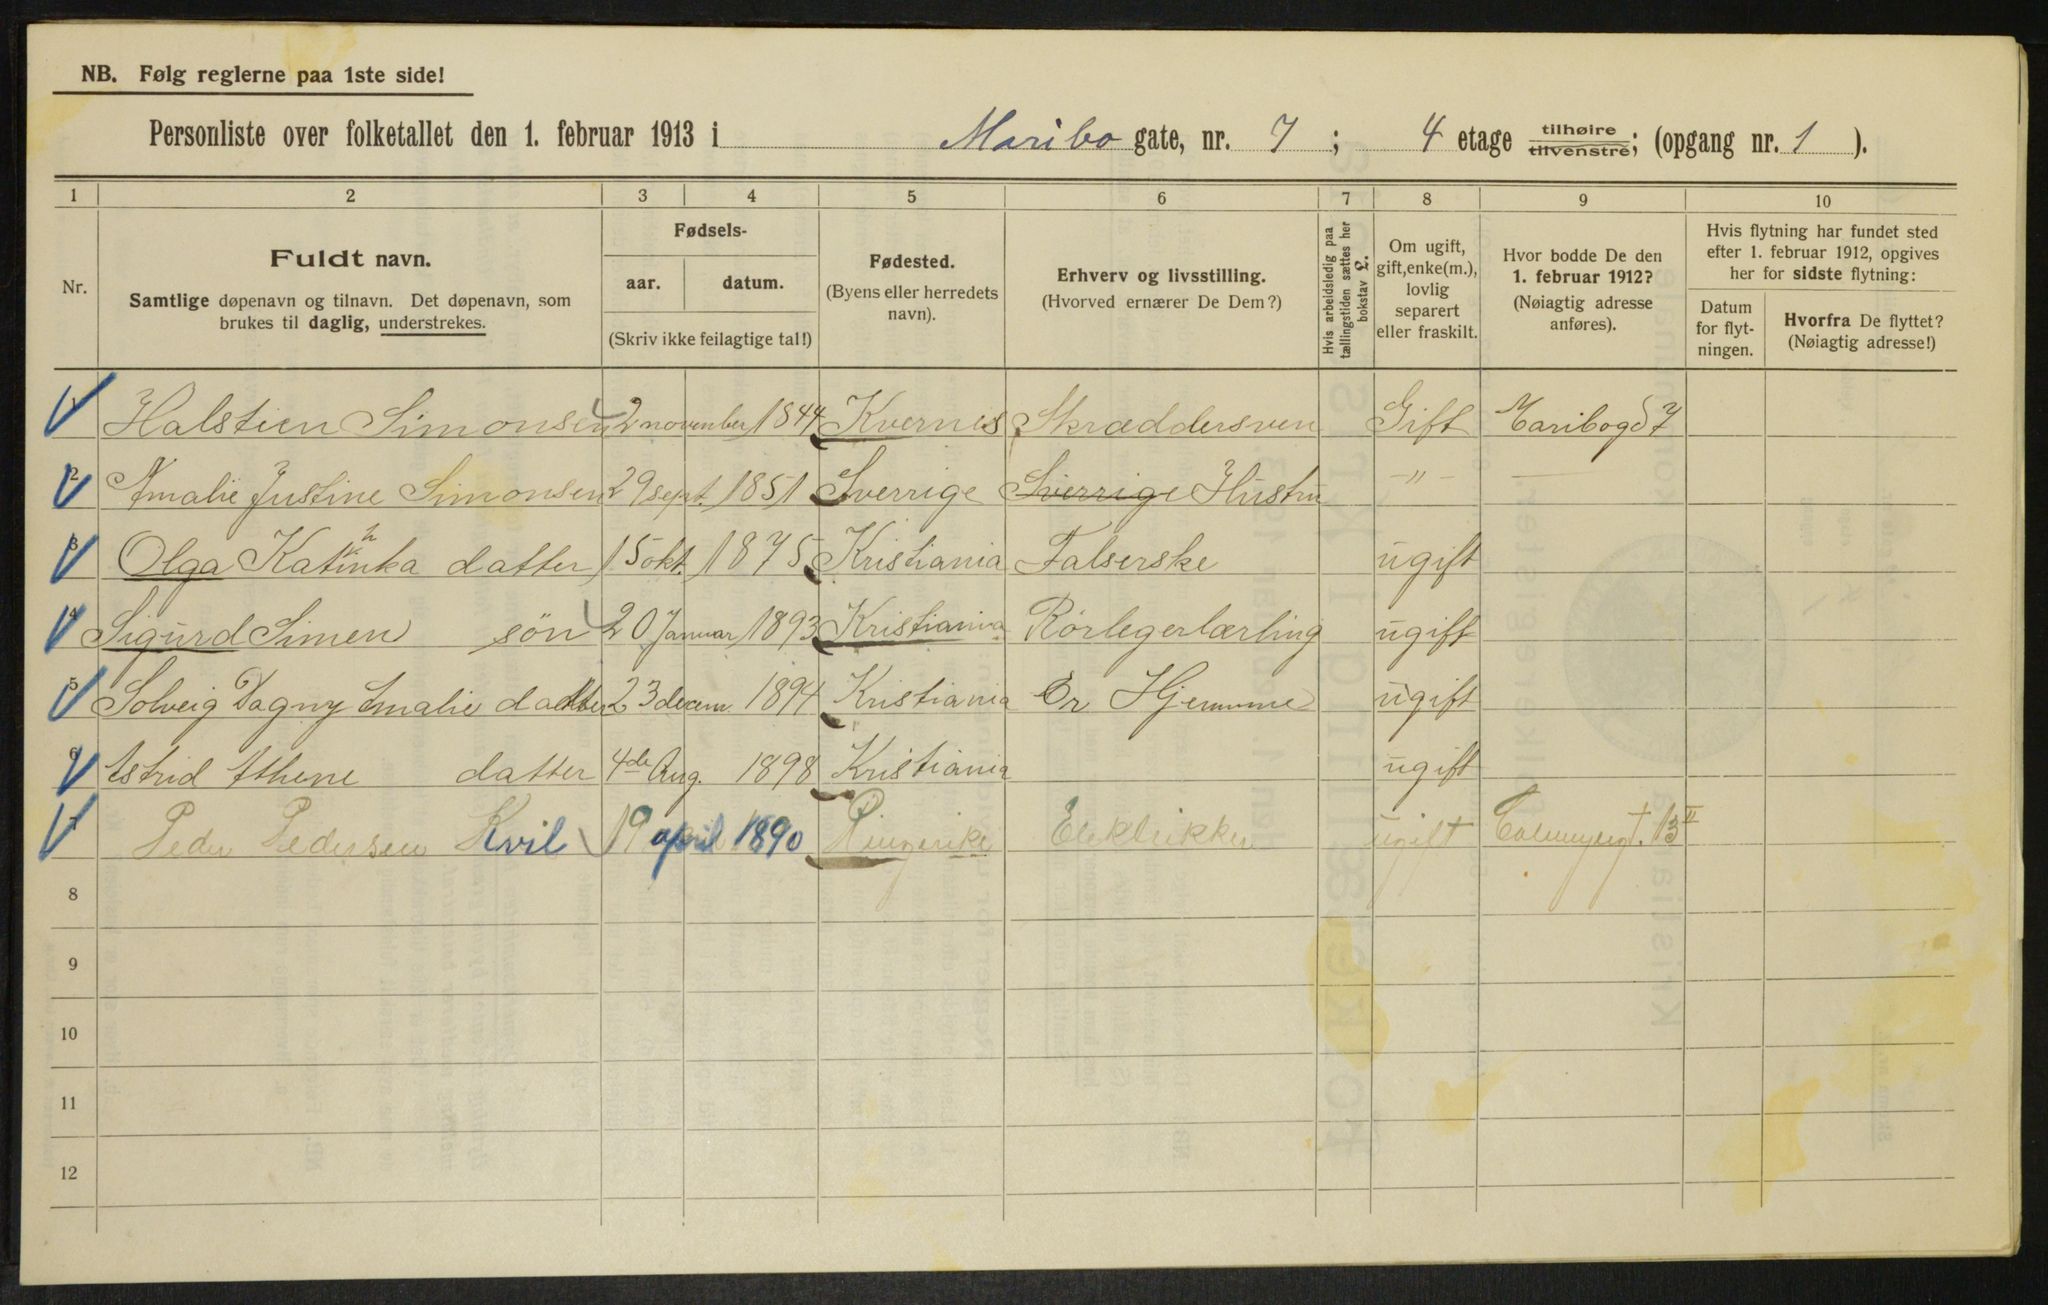 NB. Følg reglerne paa 1ste side!
Personliste over folketallet den 1. februar 1913 i Maribo gate, nr. 7 ; 4 etage tilhøire tilvenstre; (opgang nr. 1 ).
1 2 3 4 5 6 7 8 9 10
Nr.
Fuldt navn.
Samtlige døpenavn og tilnavn. Det døpenavn, som
brukes til daglig, understrekes.
Fødsels-
aar. datum.
(Skriv ikke feilagtige tal!)
Fødested.
(Byens eller herredets
navn).
Erhverv og livsstilling.
(Hvorved ernærer De Dem?)
Hvis arbeidsledig paa
tællingstiden sættes her
bokstav L.
Om ugift,
gift, enke(m.),
lovlig
separert
eller fraskilt.
Hvor bodde De den
1. februar 1912?
(Nøiagtig adresse
anføres).
Hvis flytning har fundet sted
efter 1. februar 1912, opgives
her for sidste flytning:
Datum
for flyt-
ningen.
Hvorfra De flyttet?
(Nøiagtig adresse!)
1 Halstien Simonsen 2 november 1844 Kvernes Skræddersven Gift Maribogd 7
2 Amalie Justine Simonsen 29 sept. 1851 Sverrige Sverrige Hustru -"-
3 Olga Katinka datter 15 okt. 1875 Kristiania Falserske ugift
4 Sigurd Simen søn 20 Januar 1893 Kristiania Rörlegerlærling ugift
5 Solveig Dagny Amalie datter 23 decem 1894 Kristiania Er Hjemme ugift
6 Astrid Athene datter 4de Aug. 1898 Kristiania ugift
7 Peder Pedersen Kvil 19 april 1890 Ringerike Elektrikker ugift 13 II
8
9
10
11
12